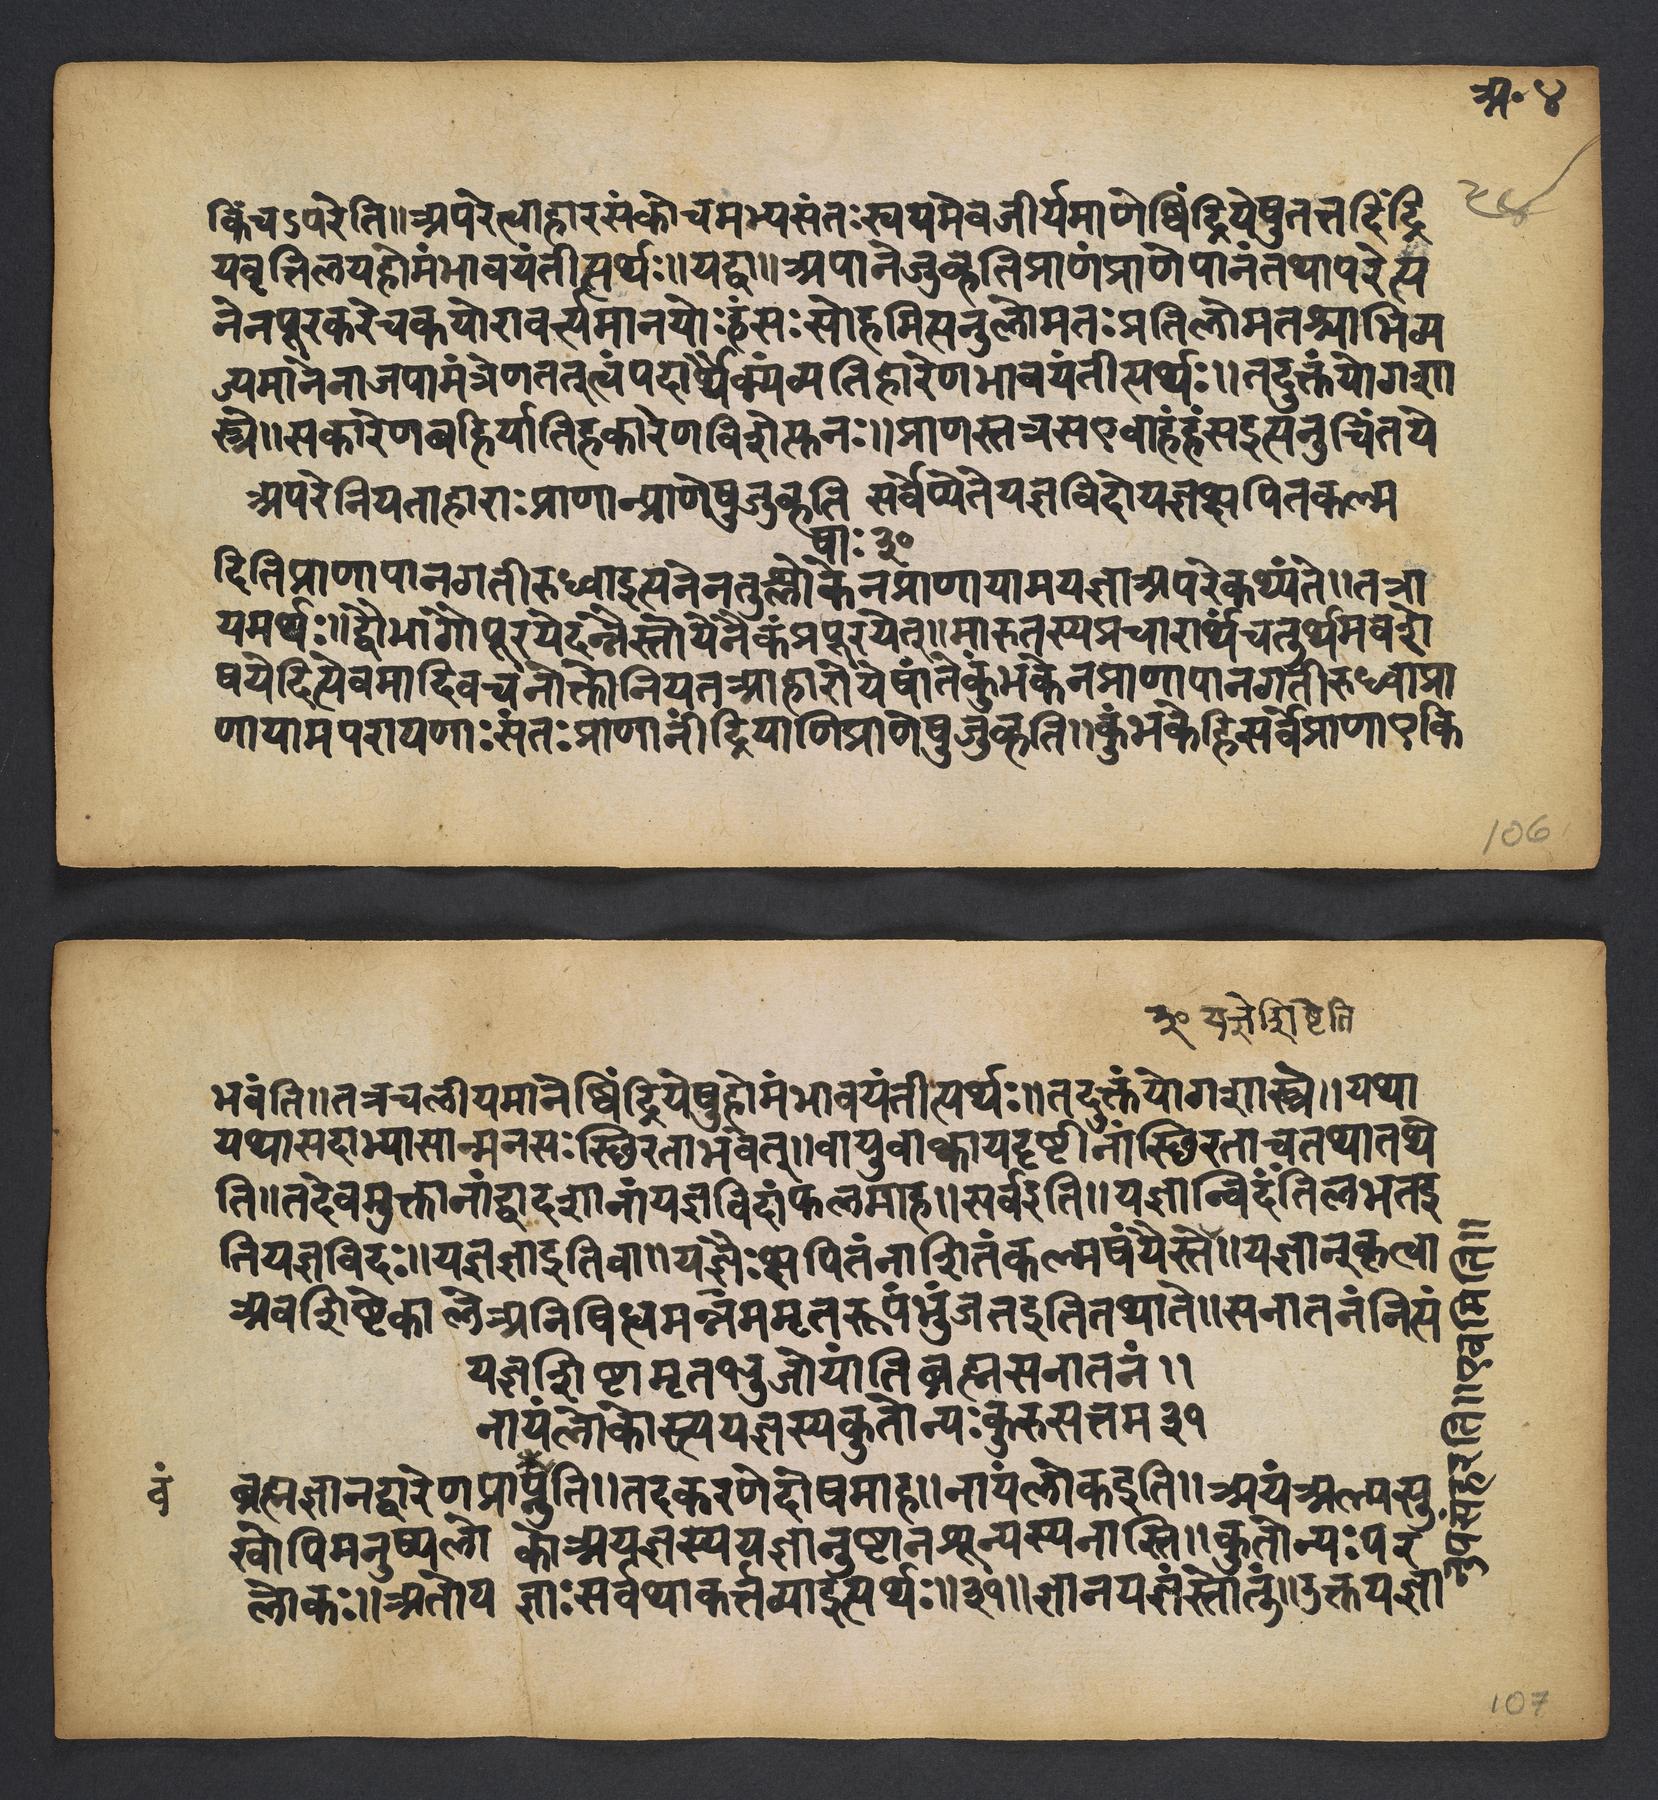 अ॰ ४
२८
किंच ऽपरेति॥अपरेत्वाहारसंकोचमभ्यसंतःस्वयमेवजीर्यमाणेष्विंद्रियेषुतत्तदिंद्रि
यवृत्तिलयहोमंभावयंतीत्यर्थः॥यद्वा॥अपानेजुव्हतिप्राणंप्राणेपानंतथापरेत्य
नेनपूरकरेचकयोरावर्त्यमानयोःहंसःसोहमित्यनुलोमतःप्रतिलोमतश्चाभिव्य
ज्यमानेनाजपामंत्रेणतत्त्वंपदार्थैक्यंव्यतिहारेणभावयंतीत्यर्थः॥तदुक्तंयोगशा
स्त्रे॥सकारेणबहिर्यातिहकारेणविशेत्पुनः॥प्राणस्तत्रसएवाहंहंसइत्यनुचिंतये
अपरेनियताहाराःप्राणान्प्राणेषुजुव्हति सर्वेप्येतेयज्ञविदोयज्ञक्षपितकल्म
षाः३०
दितिप्राणापानगतीरुध्वाइत्यनेनतुश्लोकेनप्राणायामयज्ञाअपरेकथ्यंते॥तत्रा
यमर्थः॥द्वौभागौपूरयेदंन्नैस्तोयेनैकंप्रपूरयेत्॥मारुतस्यप्रचारार्थंचतुर्थमवशे
षयेदित्येवमादिवचनोक्तोनियतआहारोयेषांतेकुंभकेनप्राणापानगतीरुध्वाप्रा
णायामपरायणाःसंतःप्राणानींद्रियाणिप्राणेषुजुव्हति॥कुंभकेहिसर्वेप्राणाएकि
106
३० यज्ञेशिष्टेति
भवंति॥तत्रचलीयमानेष्विंद्रियेषुहोमंभावयंतीत्यर्थः॥तदुक्तंयोगशास्त्रे॥यथा
यथासदाभ्यासान्मनसःस्थिरताभवेत्॥वायुवाक्कायदृष्टीनांस्थिरताचतथातथे
ति॥तदेवमुक्तानांद्वादशानांयज्ञविदांफलमाह॥सर्वइति॥यज्ञान्विदंतिलभतइ
तियज्ञविदः॥यज्ञज्ञाइतिवा॥यज्ञैःक्षपितंनाशितंकल्मषंयैस्ते॥यज्ञान्कृत्वा
अवशिष्टेकालेअनिषिध्धमन्नममृतरूपंभुंजतइतितथाते॥सनातनंनित्यं
यज्ञशिष्टामृतभुजोयांतिब्रह्मसनातनं॥
नायंलोकोस्त्ययज्ञस्यकुतोन्यःकुरुसत्तम३१
वं ब्रह्मज्ञानद्वारेणप्राप्नुति॥तदकरणेदोषमाह॥नायंलोकइति॥अयंअल्पसु
खोपिमनुष्यलोकोअयज्ञस्ययज्ञानुष्टानशून्यस्यनास्ति॥कुतोन्यःपर
लोकः॥अतोयज्ञाःसर्वथाकर्त्तव्याइत्यर्थः॥३१॥ज्ञानयज्ञंस्तोतुं॥उक्तयज्ञा
नुपसंहरति॥एवमिति॥
107